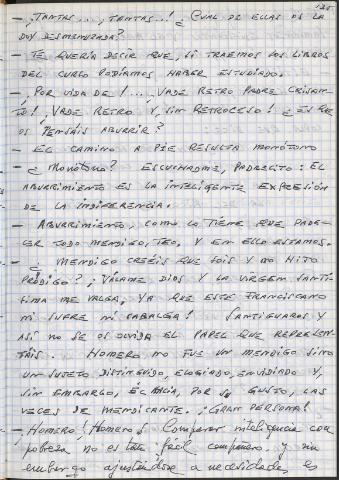 125
— ¡TANTAS..., TANTAS...! ¿ CUAL DE ELLAS OS LA
DOY DESMENUZADA?
— TE QUERÍA DECIR QUE, SI TRAEMOS LOS LIBROS
DEL CURSO PODÍAMOS HABER ESTUDIADO.
— ¡POR VIDA DE!... ¡VADE RETRO PADRE CRISAN-
TO! ¡VADE RETRO Y, SIN RETROCESO! ¿ ES POR
OS PENSÁIS ABURRIR?
— EL CAMINO A PIE RESULTA MONÓTONO
— ¿ MONÓTONO? ESCUCHADME, PADRECITO: EL
ABURRIMIENTO ES LA INTELIGENTE EXPRESIÓN
DE LA INDIFERENCIA.
— ABURRIMIENTO, COMO LO TIENE QUE PADE-
CER TODO MENDIGO, TEO, Y EN ELLO ESTAMOS.
— ¿ MENDIGO CREÉIS QUE SOIS Y NO HIJO
PRÓDIGO? ¡VÁLAME DIOS Y LA VIRGEN SANTÍ-
SIMA ME VALGA, YA QUE ESTE FRANCISCANO
NI SUFRE NI CABALGA! SANTIGUAROS Y
ASÍ NO SE OS OLVIDA EL PAPEL QUE REPRESEN-
TÁIS. HOMERO NO FUE UN MENDIGO SINO
UN SUJETO DISTINGUIDO, ELOGIADO, ENVIDIADO Y,
SIN EMBARGO, ÉL HACIA, POR SU GUSTO, LAS
VECES DE MENDICANTE. ¡GRAN PERSONA!
— ¡HOMERO! ¡Homero! Comparar inteligencia con
pobreza no es tan fácil compañero y sin
embargo ajustándose a necesidades, es